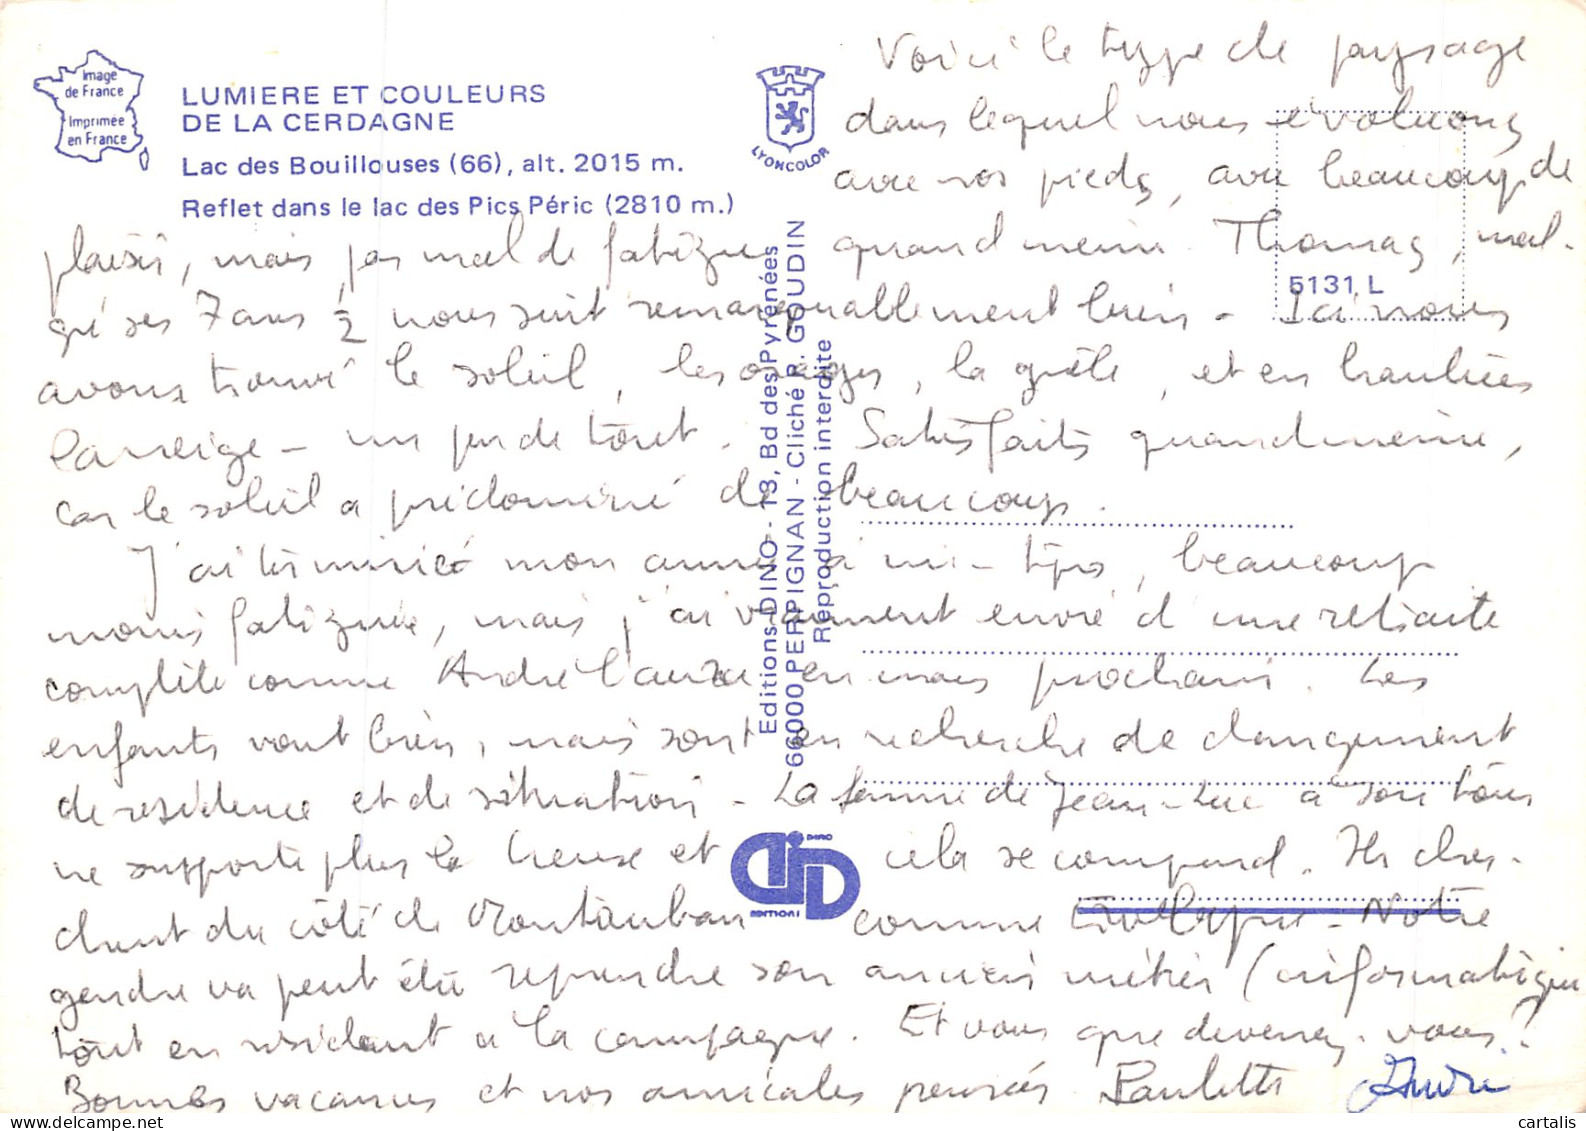 Image
de France
Imprimée
en France
LUMIERE ET COULEURS
DE LA CERDAGNE
Lac des Bouillouses (66), alt. 2015 m.
Reflet dans le lac des Pics Péric (2810 m.)
LYONCOLOR
5131 L
Editions DINO - 13, Bd des Pyrénées
66000 PERPIGNAN - Cliché R. GOUDIN
Reproduction interdite
DINO
EDITIONS
Voici le type de paysage
dans lequel nous évoluons
avec nos pieds, avec beaucoup de
plaisir, mais pas mal de fatigue quand même. Thomas, mal-
gré ses 7 ans ½ nous suit remarquablement bien - Ici nous
avons trouvé le soleil, les orages, la grêle, et en
la neige - un peu de tout. Satisfaits quand même,
car le soleil a prédominé de beaucoup.
J'ai terminé mon année à mi-tps, beaucoup
moins fatiguée, mais j'ai vraiment envie d'une retraite
complète comme André l'aura en mars prochain. Les
enfants vont bien, mais sont en recherche de changement
de résidence et de situation - La femme de Jean-Luc à son tour
ne supporte plus la Creuse et cela se comprend. Ils cher-
chent du côté de Montauban comme - Notre
gendre va peut être reprendre son ancien métier (informatique
tout en résidant à la campagne. Et vous que devenez-vous?
Bonnes vacances et nos amicales pensées Paulette André
cartalis